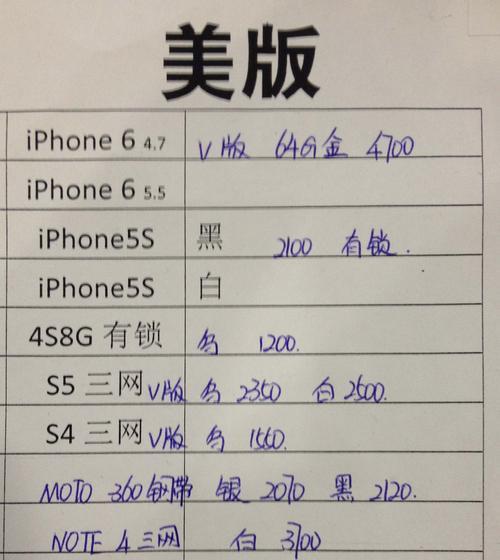 美版
iPhone 6 4.7 V版 64G金 4700
iPhone 6 5.5
iPhone5S 黑 2100 有锁.
iPhone5S 白
4S8G 有锁 1200.
S5 三网 V版 2350 白2500.
S4 三网 V版 1550.
MOTO 360 钢带 银 2070 黑 2120.
NOTE 4 三网 白 3700